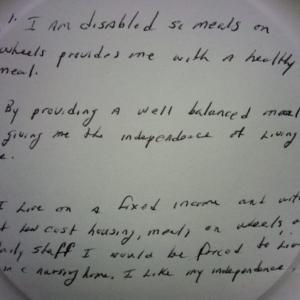 1. I am disabled so meals on
wheels provides me with a healthy
meal.
By providing a well balanced meal
giving me the independence of living
e.
I live on a fixed income and with
t low cost housing, meals on wheels a
daily staff I would be forced to live
in a nursing home. I like my independence.